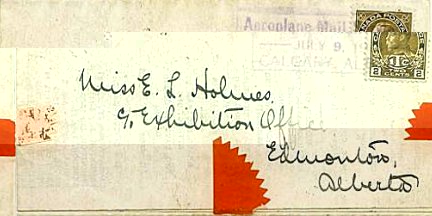 Aeroplane Mail
JULY 9, 19
CALGARY, AL
CANADA POSTAGE
2 CENTS 2
Miss E. L. Holmes.
c/o Exhibition Office
Edmonton,
Alberta